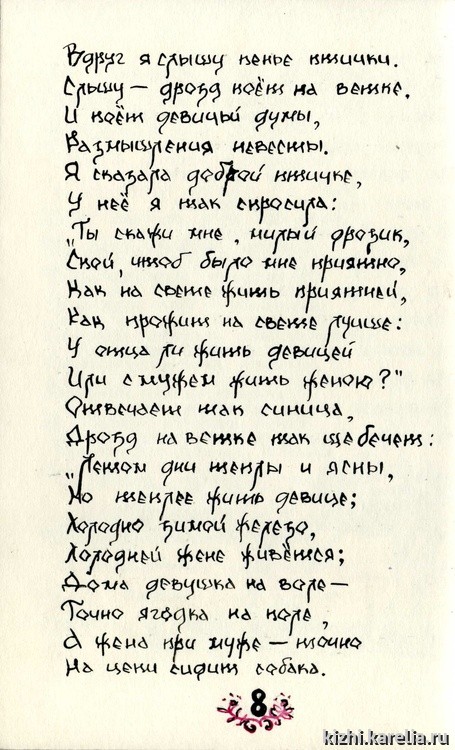 Вдруг я слышу пенье птички.
Слышу — дрозд поёт на ветке.
И поёт девичьи думы,
Размышления невесты.
Я сказала доброй птичке,
У неё я так спросила:
"Ты скажи мне, милый дрозик,
Спой, чтоб было мне приятно,
Как на свете жить приятней,
Как прожить на свете лучше:
У отца ли жить девицей
Или с мужем жить женою?"
Отвечает так синица,
Дрозд на ветке так щебечет:
"Летом дни теплы и ясны,
Но теплее жить девице;
Холодно зимой железо,
Холодней жене живётся;
Дома девушка на воле —
Точно ягодка на поле,
А жена при муже — точно
На цепи сидит собака.
8
kizhi.karelia.ru